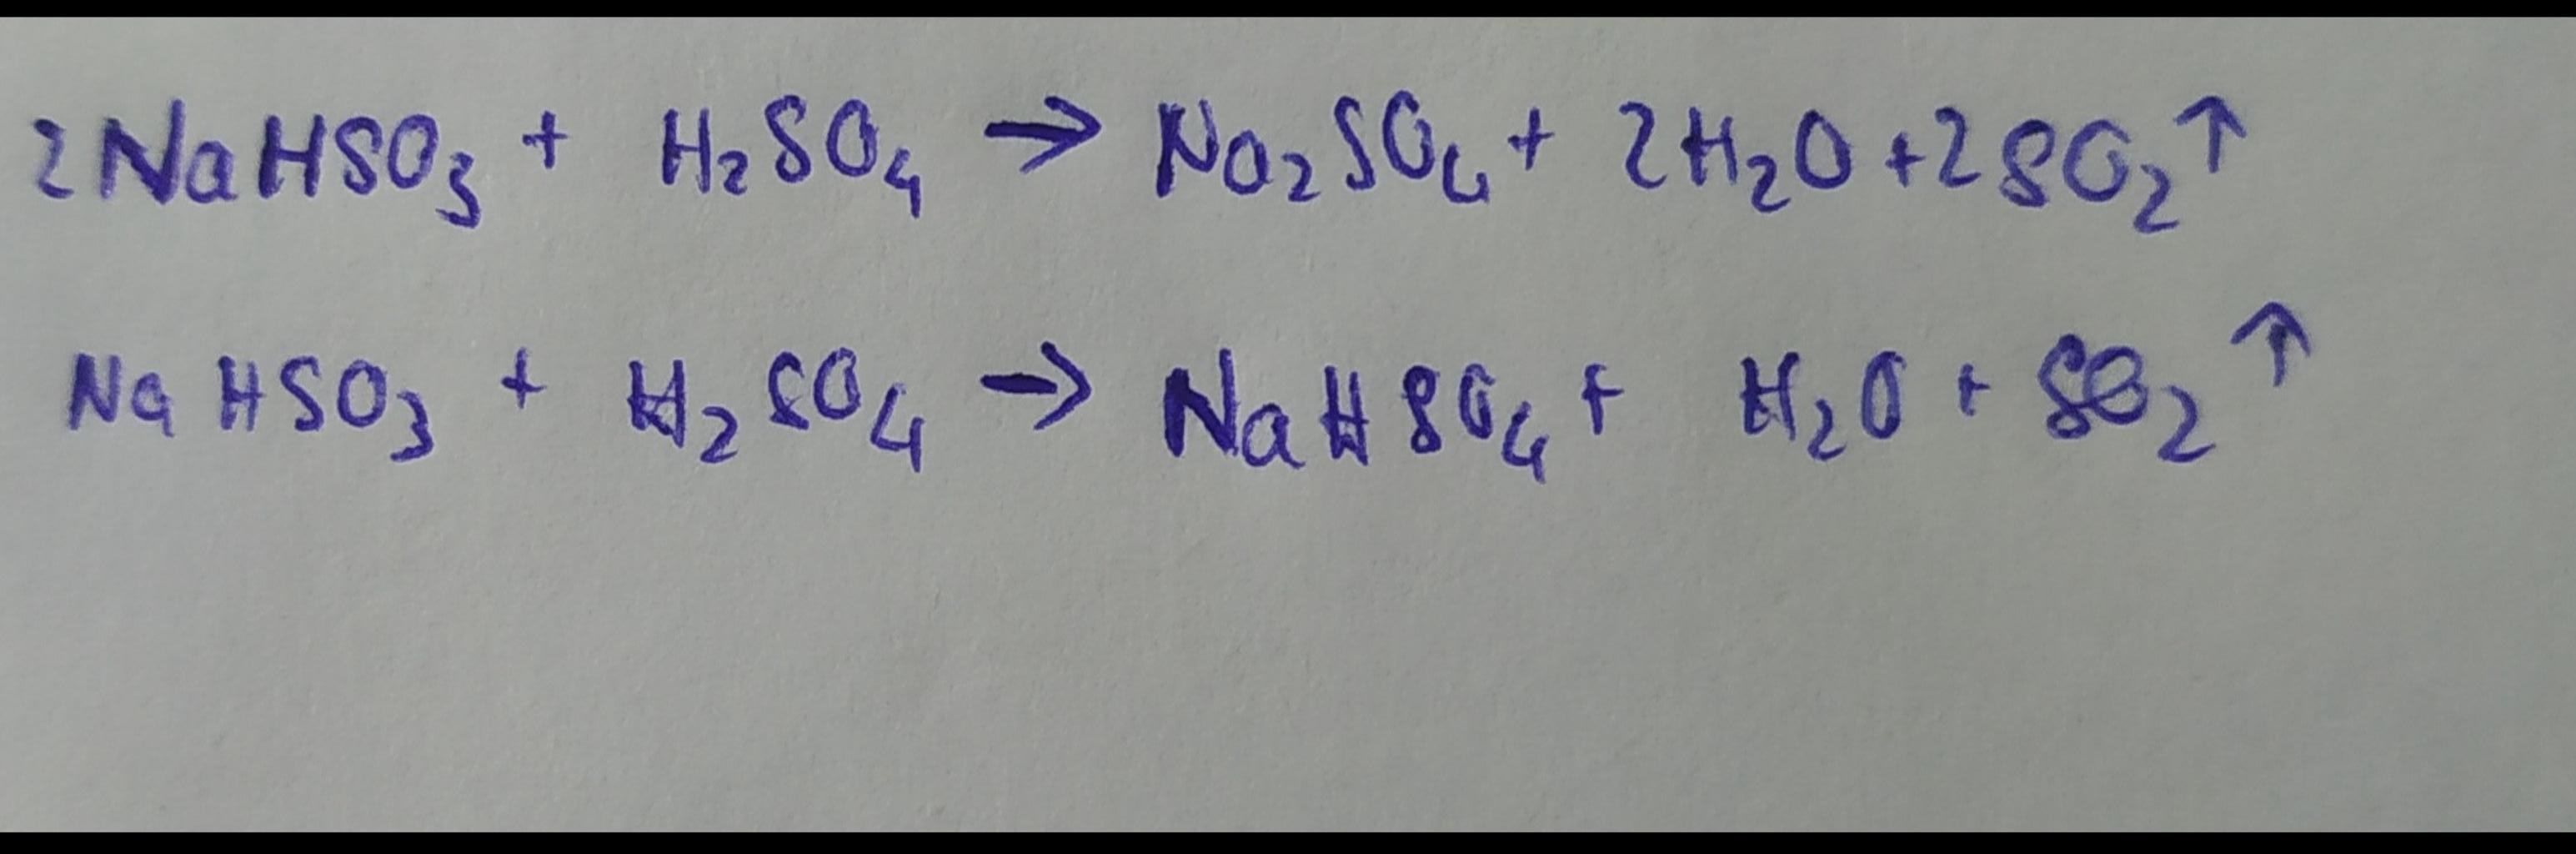 2NaHSO₃ + H₂SO₄ → Na₂SO₄ + 2H₂O + 2SO₂↑
NaHSO₃ + H₂SO₄ → NaHSO₄ + H₂O + SO₂↑